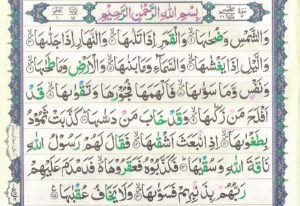 بِسْمِ اللهِ الرَّحْمٰنِ الرَّحِيْمِ
وَالشَّمْسِ وَضُحٰىهَا وَالْقَمَرِ اِذَا تَلٰىهَا وَالنَّهَارِ اِذَا جَلّٰىهَا
وَالَّيْلِ اِذَا يَغْشٰىهَا وَالسَّمَآءِ وَمَا بَنٰىهَا وَالْاَرْضِ وَمَا طَحٰىهَا
وَنَفْسٍ وَّمَا سَوّٰىهَا فَاَلْهَمَهَا فُجُوْرَهَا وَتَقْوٰىهَا قَدْ
اَفْلَحَ مَنْ زَكّٰىهَا وَقَدْ خَابَ مَنْ دَسّٰىهَا كَذَّبَتْ ثَمُوْدُ
بِطَغْوٰىهَا اِذِ انْۢبَعَثَ اَشْقٰىهَا فَقَالَ لَهُمْ رَسُوْلُ اللهِ
نَاقَةَ اللهِ وَسُقْيٰهَا فَكَذَّبُوْهُ فَعَقَرُوْهَا فَدَمْدَمَ عَلَيْهِمْ
رَبُّهُمْ بِذَنْۢبِهِمْ فَسَوّٰىهَا وَلَا يَخَافُ عُقْبٰهَا